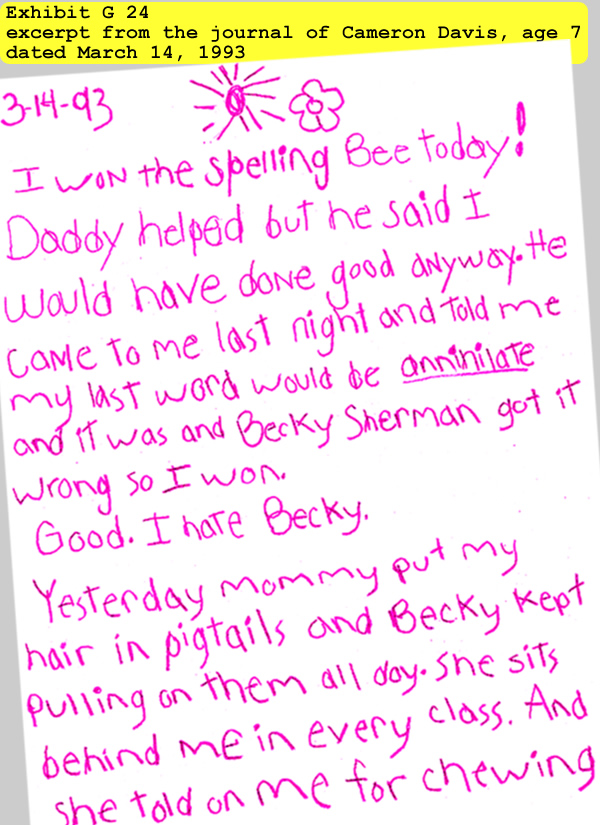 Exhibit G 24
excerpt from the journal of Cameron Davis, age 7
dated March 14, 1993
3-14-93
I won the spelling Bee today!
Daddy helped but he said I
would have done good anyway. He
came to me last night and told me
my last word would be annihilate
and it was and Becky Sherman got it
wrong so I won.
Good. I hate Becky.
Yesterday mommy put my
hair in pigtails and Becky kept
pulling on them all day. She sits
behind me in every class. And
she told on me for chewing